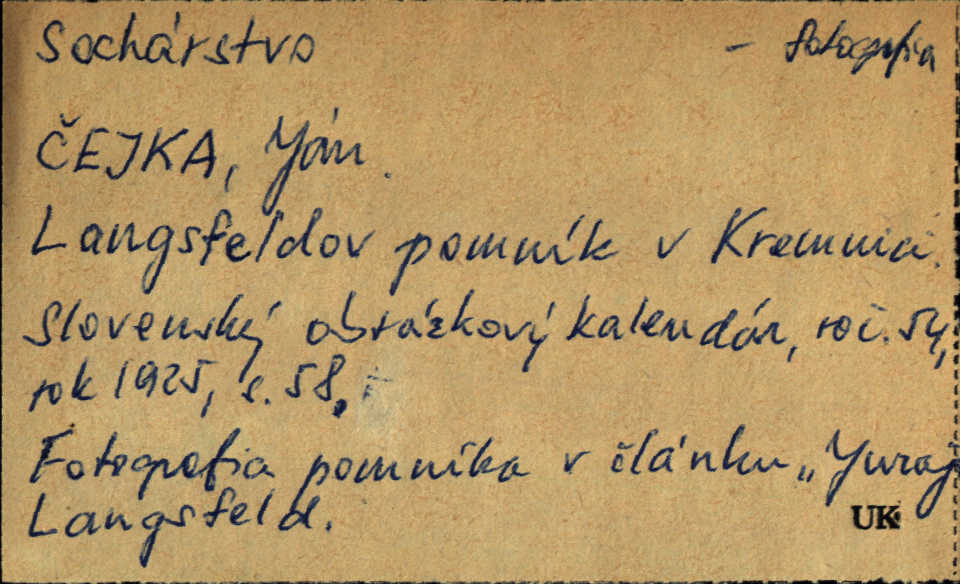 Sochárstvo – fotografia
ČEJKA, Ján.
Langsfeldov pomník v Kremnici.
Slovenský obrázkový kalendár, roč. 54,
rok 1925, s. 58,
Fotografia pomníka v článku „Juraj
Langsfeld.
UK